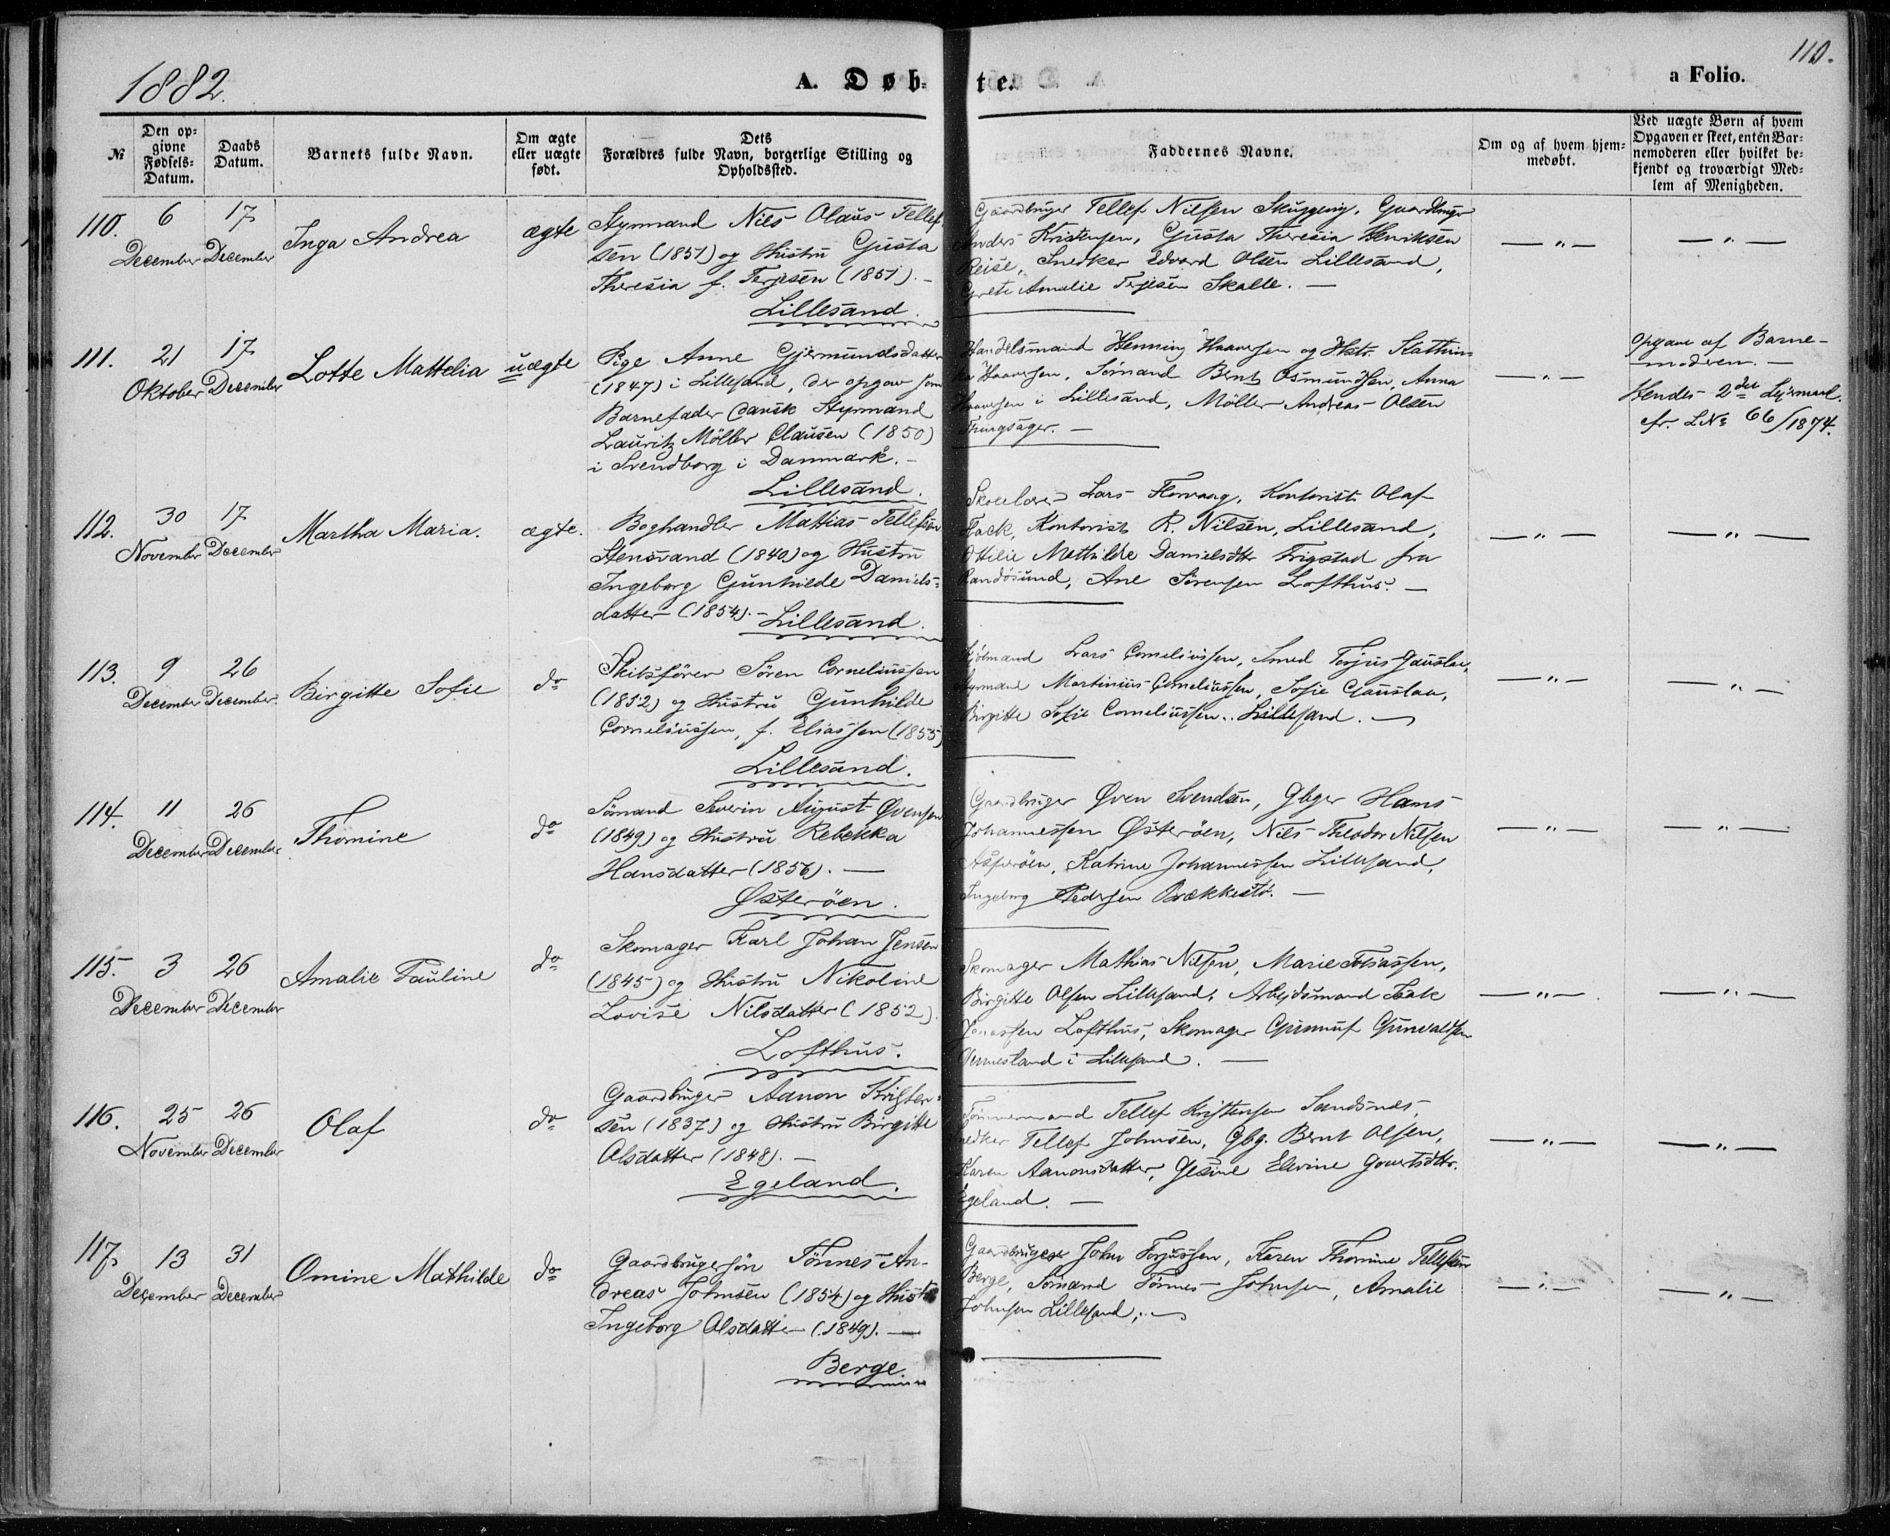 1882.
A. Døb-
te.
a Folio.
110.
№
Den op-
givne
Fødsels-
Datum.
Daabs
Datum.
Barnets fulde Navn.
Om ægte
eller uægte
født.
Dets
Forældres fulde Navn, borgerlige Stilling og
Opholdssted.
Faddernes Navne.
Om og af hvem hjem-
medøbt.
Ved uægte Børn af hvem
Opgaven er skeet, enten Bar-
nemoderen eller hvilket be-
kjendt og troværdigt Med-
lem af Menigheden.
110.
6
December
17
December
Inga Andrea
ægte
Styrmand Nils Olaus Tellef-
sen (1851) og Hustru Gusta
Theresia f. Terjesen (1851). —
Lillesand.
Gaardbruger Tellef Nilsen Skuggevig, Gaardbruger
Anders Kristensen, Gusta Theresia Henriksen
Reise, Snedker Edvard Olsen Lillesand,
Grete Amalie Terjesen Skalle. —
— " —
— " —
111.
21
Oktober
17
December
Lotte Mattelia
uægte
Pige Anne Gjermundsdatter
(1847) i Lillesand, der opgav som
Barnefader dansk Styrmand
Lauritz Møller Clausen (1850)
i Svendborg i Danmark. —
Lillesand.
Handelsmand Henning Haaversen og Hstr. Kathrin-
ka Haaversen, Sømand Bernt Osmundsen, Anna
Haaversen i Lillesand, Møller Andreas Olsen
Tingsager. —
— " —
Opgave af Barne-
moderen. —
Hendes 2det Lejermaal.
cfr. L№ 66/1874.
112.
30
November
17
December
Martha Maria.
ægte.
Boghandler Mattias Tellefsen
Stensvand (1840) og Hustru
Ingeborg Gunhilde Daniels-
datter (1854). —
Lillesand.
Skolelærer Lars Florvaag, Kontorist Olaf
Haok, Kontorist R. Nilsen, Lillesand,
Ottilie Methilde Danielsdtr Frigstad fra
Randøsund, Ane Sørensen Lofthus. —
— " —
— " —
113.
9
December
26
December.
Birgitte Sofie
do
Skibsfører Søren Corneliussen
(1852) og Hustru Gunhilde
Corneliussen, f. Eliassen (1855)
Lillesand.
Lars Corneliussen, Smed Terjus Gauslaa,
Styrmand Martinius Corneliussen, Sofie Gauslaa,
Birgitte Sofie Corneliussen. Lillesand. —
— " —
— " —
114.
11
December
26
December
Thomine
do
Sømand Severin August Øvensen
(1849) og Hustru Rebekka
Hansdatter (1856). —
Østerøen.
Gaardbruger Øven Svendsen, Gbger Hans
Johannessen Østerøen, Nils Theodor Nilsen
Asperøen, Katrine Johannessen Lillesand,
Ingeborg Pedersen Brækkestø. —
— " —
— " —
115.
3
December
26
December
Amalie Pauline
do
Skomager Karl Johan Jensen
(1845) og Hustru Nikoline
Lovise Nilsdatter (1852).
Lofthus.
Skomager Mathias Nilsen, Marie Tobiassen,
Birgitte Olsen Lillesand, Arbejdsmand Isak
Jonassen Lofthus, Skomager Gunnuf Gunvaldsen
Vennesland i Lillesand. —
— " —
— " —
116.
25
November
26
December
Olaf
do
Gaardbruger Aanon Kristen-
sen (1837) og Hustru Birgitte
Olsdatter (1848). —
Egeland.
Tømmermand Tellef Kristensen Sandsnes,
Snedker Tellef Johnsen, Gbg. Bernt Olsen,
Karen Aanonsdatter, Gesine Elevine Govertsdtr.
Egeland. —
— " —
— " —
117.
13
December
31
December
Omine Mathilde
do
Gaardbrugersøn Tønnes An-
dreas Johnsen (1854) og Hustru
Ingeborg Olsdatter (1849). —
Berge.
Gaardbruger John Torjussen, Karen Thomine Tellefsen
Berge, Sømand Tønnes Johnsen, Amalie
Johnsen Lillesand. —
— " —
— " —